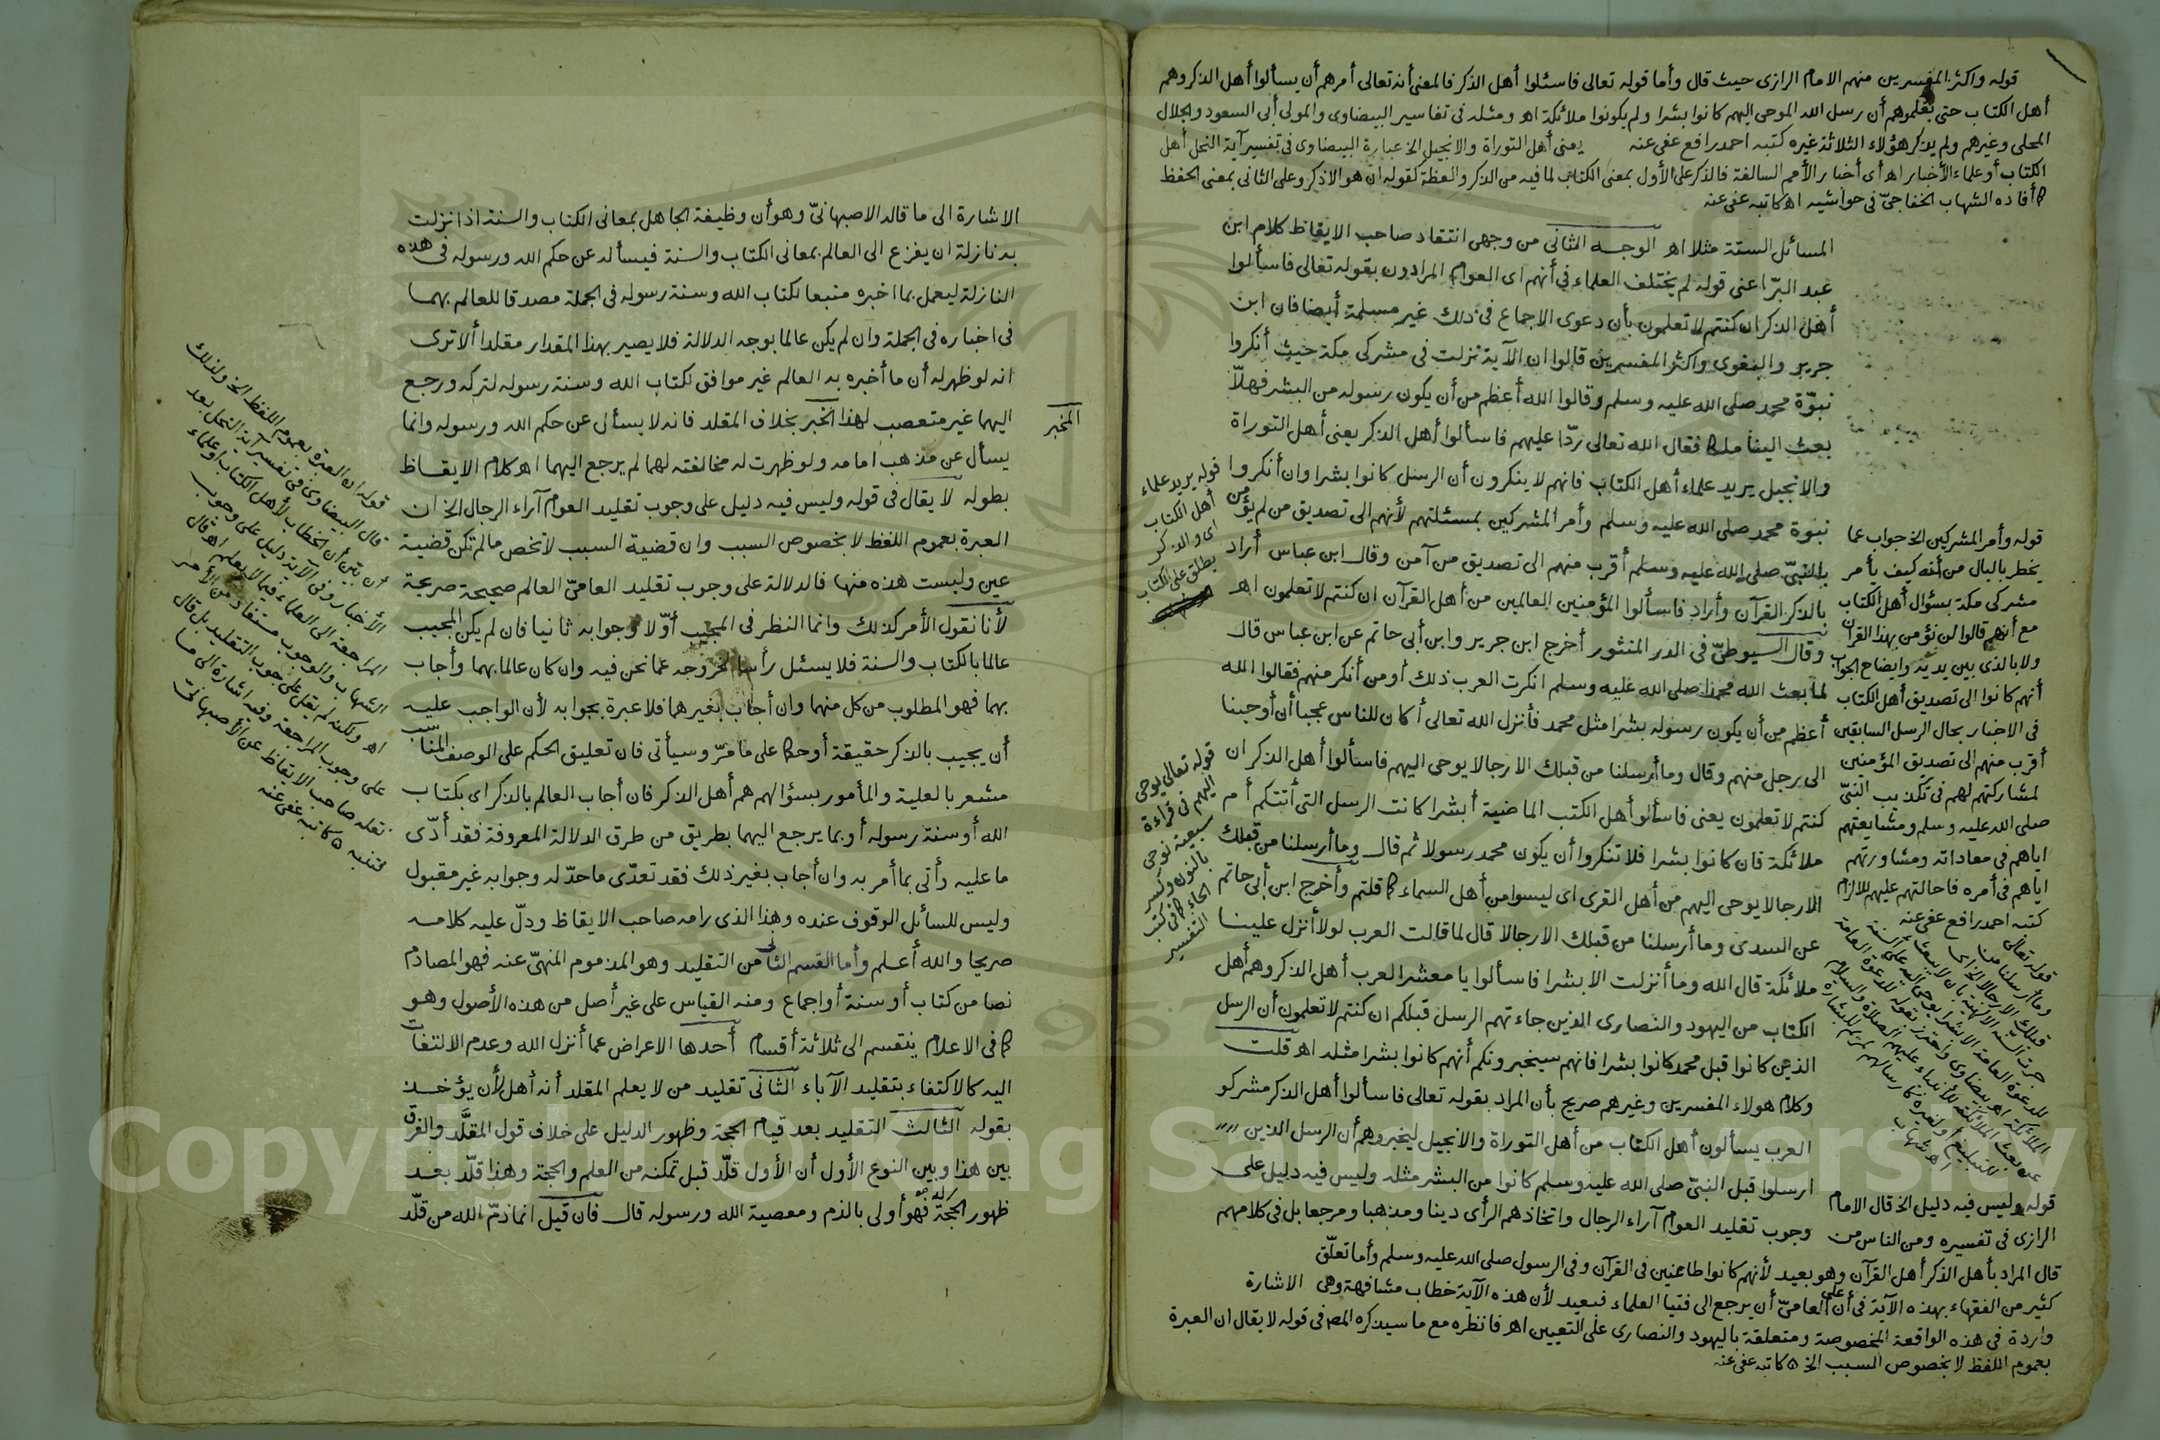 قوله واكثر المفسرين منهم الامام الرازى حيث قال وأما قوله تعالى فاسئلوا أهل الذكر فالمعنى أنه تعالى أمرهم أن يسألوا أهل الذكر وهم
أهل الكتاب حتى يعلموهم أن رسل الله الموحى اليهم كانوا بشرا ولم يكونوا ملائكة اهـ ومثله فى تفاسير البيضاوى والمولى أبى السعود والجلال
المحلى وغيرهم ولم يذكر هؤلاء الثلاثة غيره كتبه احمد رافع عفى عنه يعنى أهل التوراة والانجيل الخ عبارة البيضاوى فى تفسير آية النحل أهل
الكتاب أو علماء الأخبار اهـ أى أخبار الأمم السالفة فالذكر على الأول بمعنى الكتاب لما فيه من الذكر والعظة لقوله ان هو الا ذكر وعلى الثانى بمعنى الحفظ
كما أفاده الشهاب الخفاجىّ فى حواشيه اهـ كاتبه عفى عنه
المسائل الستة مثلا اهـ الوجه الثانى من وجهى انتقاد صاحب الايقاظ كلام ابن
عبد البرّ اعنى قوله لم يختلف العلماء فى أنهم اى العوام المرادون بقوله تعالى فاسألوا
أهل الذكر ان كنتم لا تعلمون بأن دعوى الاجماع فى ذلك غير مسلمة أيضا فان ابن
جرير والبغوى واكثر المفسرين قالوا ان الآية نزلت فى مشركى مكة حيث أنكروا
نبوّة محمد صلى الله عليه وسلم وقالوا الله أعظم من أن يكون رسوله من البشر فهلاّ
بعث الينا ملكا فقال الله تعالى ردّا عليهم فاسألوا أهل الذكر يعنى أهل التوراة
والانجيل يريد علماء أهل الكتاب فانهم لا ينكرون أن الرسل كانوا بشرا وان أنكروا
نبوة محمد صلى الله عليه وسلم وأمر المشركين بمسئلتهم لأنهم الى تصديق من لم يؤمن
بالنبىّ صلى الله عليه وسلم أقرب منهم الى تصديق من آمن وقال ابن عباس أراد
بالذكر القرآن وأراد فاسألوا المؤمنين العالمين من أهل القرآن ان كنتم لا تعلمون اهـ
وقال السيوطىّ فى الدر المنثور أخرج ابن جرير وابن أبى حاتم عن ابن عباس قال
لما بعث الله محمدا صلى الله عليه وسلم انكرت العرب ذلك أو من أنكر منهم فقالوا الله
أعظم من أن يكون رسوله بشرا مثل محمد فأنزل الله تعالى أكان للناس عجبا أن أوحينا
الى رجل منهم وقال وما أرسلنا من قبلك الا رجالا يوحى اليهم فاسألوا أهل الذكر ان
كنتم لا تعلمون يعنى فاسألوا أهل الكتب الماضية أبشرا كانت الرسل التى أتتكم أم
ملائكة فان كانوا بشرا فلا تنكروا أن يكون محمد رسولا ثم قال وما أرسلنا من قبلك
الا رجالا يوحى اليهم من أهل القرى اى ليسوا من أهل السماء كما قلتم وأخرج ابن أبى حاتم
عن السدى وما أرسلنا من قبلك الا رجالا قال لما قالت العرب لولا أنزل علينا
ملائكة قال الله وما أنزلت الا بشرا فاسألوا يا معشر العرب أهل الذكر وهم أهل
الكتاب من اليهود والنصارى الذين جاءتهم الرسل قبلكم ان كنتم لا تعلمون أن الرسل
الذين كانوا قبل محمد كانوا بشرا فانهم سيخبرونكم أنهم كانوا بشرا مثله اهـ قلت
وكلام هولاء المفسرين وغيرهم صريح بأن المراد بقوله تعالى فاسألوا أهل الذكر مشركو
العرب يسألون أهل الكتاب من أهل التوراة والانجيل ليخبروهم أن الرسل الذين
ارسلوا قبل النبىّ صلى الله عليه وسلم كانوا من البشر مثله وليس فيه دليل على
وجوب تقليد العوام آراء الرجال واتخاذهم الرأى دينا ومذهبا ومرجعا بل فى كلامهم
قوله يريد علماء
أهل الكتاب
اى والذكر
يطلق على الكتاب
قوله تعالى يوحى
اليهم فى قراءة
سبعية نوحى
بالنون وكسر
الحاء كما فى كتب
التفسير
قوله وأمر المشركين الخ جواب عما
يخطر بالبال من أنه كيف يأمر
مشركى مكة بسؤال أهل الكتاب
مع أنهم قالوا لن نؤمن بهذا القرآن
ولا بالذى بين يديه وايضاح الجواب
أنهم كانوا الى تصديق أهل الكتاب
فى الاخبار بحال الرسل السابقين
أقرب منهم الى تصديق المؤمنين
لمشاركتهم لهم فى تكذيب النبىّ
صلى الله عليه وسلم ومشايعتهم
اياهم فى معاداته ومشاورتهم
اياهم فى أمره فاحالتهم عليهم للالزام
كتبه احمد رافع عفى عنه
قوله تعالى
وما أرسلنا من
قبلك الا رجالا الخ اى
جرت السنة الالهية بان لا يبعث
للدعوة العامة الا بشرا يوحى اليه على ألسنة
الملائكة اهـ بيضاوى واحترز بقوله للدعوة العامة
عن بعث الملائكة للأنبياء عليهم الصلاة والسلام
للتبليغ أو لغيره كارسالهم لمريم للبشارة
اهـ شهاب
قوله وليس فيه دليل الخ قال الامام
الرازى فى تفسيره ومن الناس من
قال المراد بأهل الذكر أهل القرآن وهو بعيد لأنهم كانوا طاعنين فى القرآن وفى الرسول صلى الله عليه وسلم وأما تعلّق
كثير من الفقهاء بهذه الآية فى أن على العامىّ أن يرجع الى فتيا العلماء فبعيد لأن هذه الآية خطاب مشافهة وهى الاشارة
واردة فى هذه الواقعة المخصوصة ومتعلقة باليهود والنصارى على التعيين اهـ فانظره مع ما سيذكره المص فى قوله لا يقال ان العبرة
بعموم اللفظ لا بخصوص السبب الخ ٥ كاتبه عفى عنه
الاشارة الى ما قاله الاصبهانىّ وهو أن وظيفة الجاهل بمعانى الكتاب والسنة اذا نزلت
به نازلة ان يفزع الى العالم بمعانى الكتاب والسنة فيسأله عن حكم الله ورسوله فى هذه
النازلة ليعمل بما اخبره متبعا لكتاب الله وسنة رسوله فى الجملة مصدقا للعالم بهما
فى اخباره فى الجملة وان لم يكن عالما بوجه الدلالة فلا يصير بهذا المقدار مقلدا ألا ترى
انه لو ظهر له أن ما أخبره به العالم غير موافق لكتاب الله وسنة رسوله لتركه ورجع
اليهما غير متعصب لهذا الخبر بخلاف المقلد فانه لا يسأل عن حكم الله ورسوله وانما
المخبر
يسأل عن مذهب امامه ولو ظهرت له مخالفته لهما لم يرجع اليهما اهـ كلام الايقاظ
بطوله لا يقال فى قوله وليس فيه دليل على وجوب تقليد العوام آراء الرجال الخ ان
العبرة بعموم اللفظ لا بخصوص السبب وان قضية السبب لا تخص ما لم تكن قضية
عين وليست هذه منها فالدلالة على وجوب تقليد العامىّ العالم صحيحة صريحة
لأنا نقول الأمر كذلك وانما النظر فى المجيب أوّلا وجوابه ثانيا فان لم يكن المجيب
عالما بالكتاب والسنة فلا يسئل رأسا لخروجه عما نحن فيه وان كان عالما بهما وأجاب
بهما فهو المطلوب من كل منهما وان أجاب بغيرهما فلا عبرة بجوابه لأن الواجب عليه
أن يجيب بالذكر حقيقة أو حكما على ما مرّ وسيأتى فان تعليق الحكم على الوصف المناسب
مشعر بالعلية والمأمور بسؤالهم هم أهل الذكر فان أجاب العالم بالذكر اى بكتاب
الله أو سنة رسوله أو بما يرجع اليهما بطريق من طرق الدلالة المعروفة فقد أدّى
ما عليه وأتى بما أمر به وان أجاب بغير ذلك فقد تعدّى ما حدّ له وجوابه غير مقبول
وليس للسائل الوقوف عنده وهذا الذى رامه صاحب الايقاظ ودلّ عليه كلامه
صريحا والله أعلم وأما القسم الثانى من التقليد وهو المذموم المنهىّ عنه فهو المصادم
نصا من كتاب أو سنة أو اجماع ومنه القياس على غير أصل من هذه الأصول وهو
كما فى الاعلام ينقسم الى ثلاثة أقسام أحدها الاعراض عما أنزل الله وعدم الالتفات
اليه كالاكتفاء بتقليد الآباء الثانى تقليد من لا يعلم المقلد أنه أهل لأن يؤخذ
بقوله الثالث التقليد بعد قيام الحجة وظهور الدليل على خلاف قول المقلَّد والفرق
بين هذا وبين النوع الأول أن الأول قلّد قبل تمكنه من العلم والحجة وهذا قلّد بعد
ظهور الحجة له فهو أولى بالذم ومعصية الله ورسوله قال فان قيل انما ذمّ الله من قلّد
قوله ان العبرة بعموم اللفظ الخ ولذلك
قال البيضاوى فى تفسير آية النحل بعد
أن بيّن أن الخطاب لأهل الكتاب أو علماء
الأخبار وفى الآية دليل على وجوب
المراجعة الى العلماء فيما لا يعلم اهـ قال
الشهاب والوجوب مستفاد من الأمر
اهـ ولكنه لم يقل على وجوب التقليد بل قال
على وجوب المراجعة وفيه اشارة الى ما
نقله صاحب الايقاظ عن الأصبهانىّ
فتنبه ٥ كاتبه عفى عنه
Copyright © King Saud University
1957